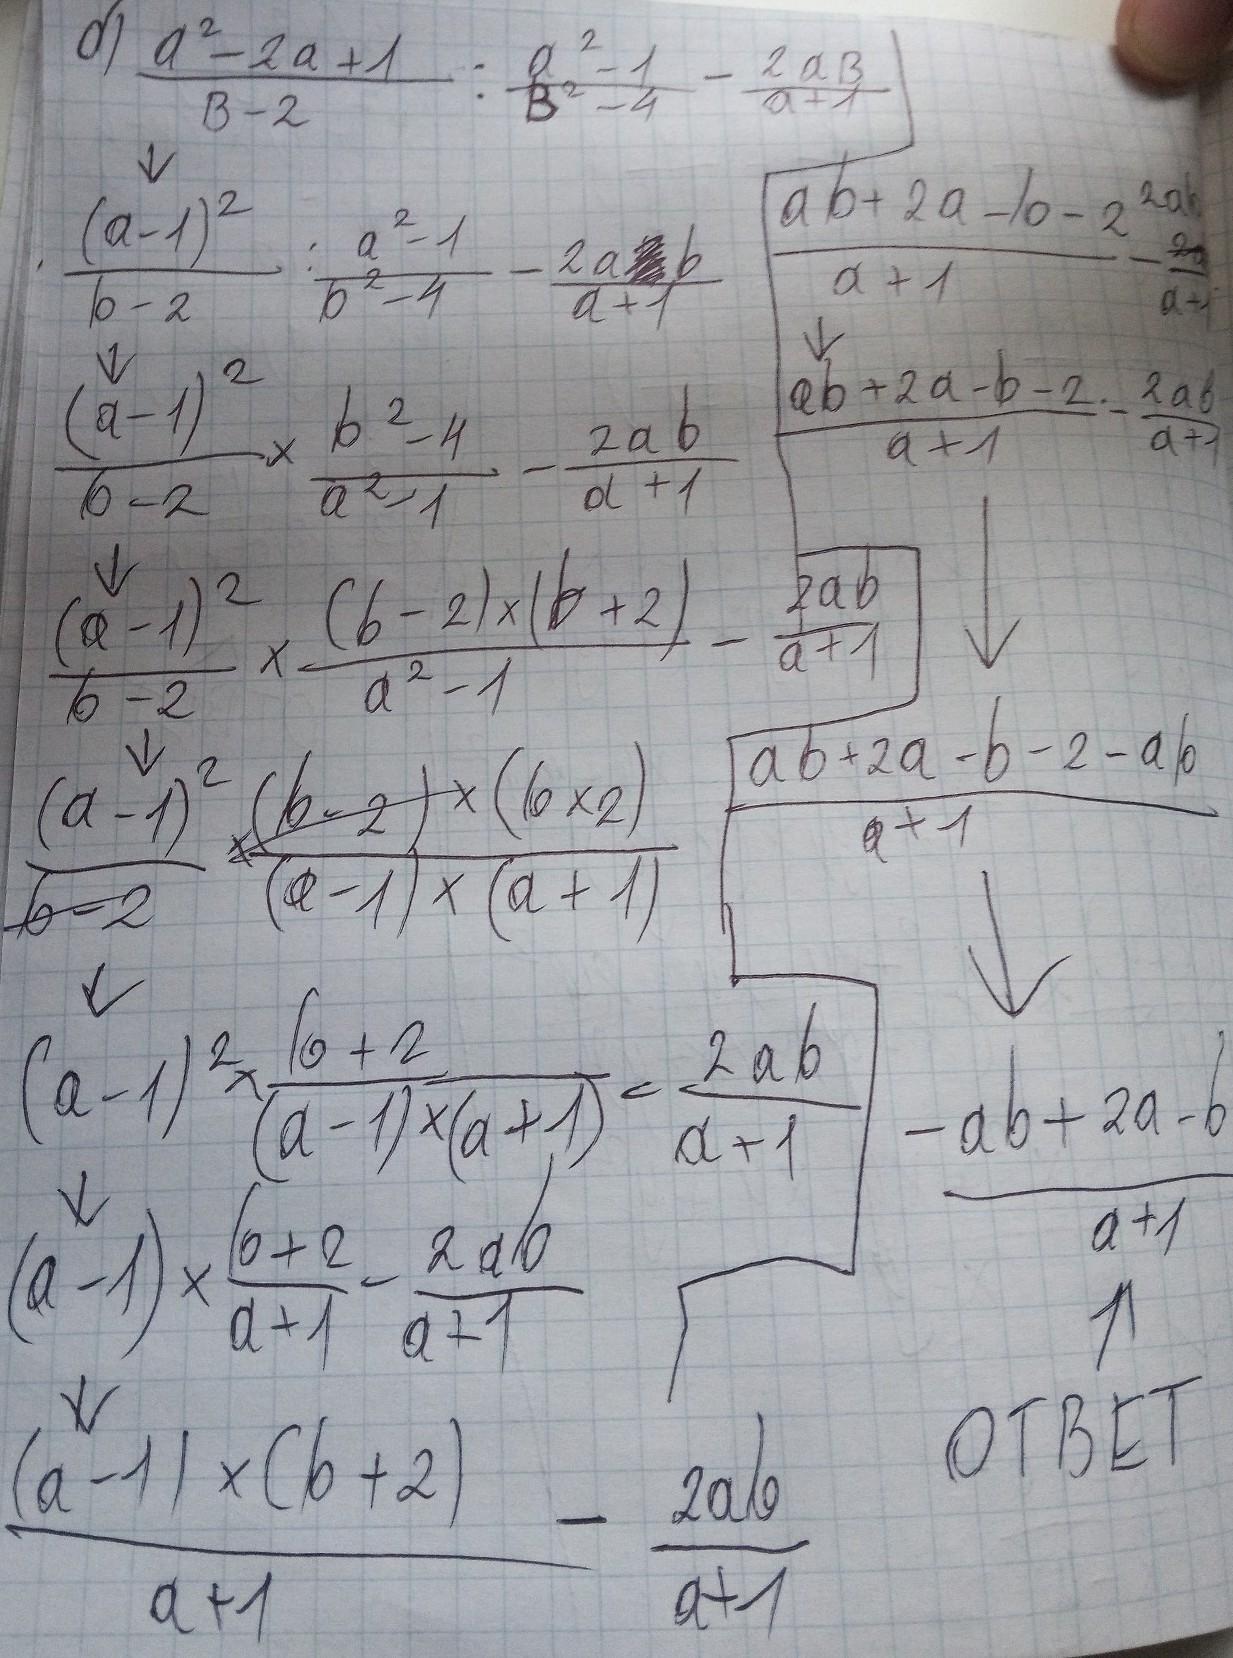 б) (a² - 2a + 1)/(B - 2) : (a² - 1)/(B² - 4) - (2aB)/(a + 1)
(a - 1)²/(b - 2) : (a² - 1)/(b² - 4) - (2ab)/(a + 1)
(a - 1)²/(b - 2) × (b² - 4)/(a² - 1) - (2ab)/(a + 1)
(a - 1)²/(b - 2) × ((b - 2) × (b + 2))/(a² - 1) - (2ab)/(a + 1)
(a - 1)²/(b - 2) × ((b - 2) × (b × 2))/((a - 1) × (a + 1))
(a - 1)² × (b + 2)/((a - 1) × (a + 1)) - (2ab)/(a + 1)
(a - 1) × (b + 2)/(a + 1) - (2ab)/(a + 1)
((a - 1) × (b + 2))/(a + 1) - (2ab)/(a + 1)
(ab + 2a - b - 2)/(a + 1) - (2ab)/(a + 1)
(ab + 2a - b - 2)/(a + 1) - (2ab)/(a + 1)
(ab + 2a - b - 2 - ab)/(a + 1)
(-ab + 2a - b)/(a + 1)
ОТВЕТ